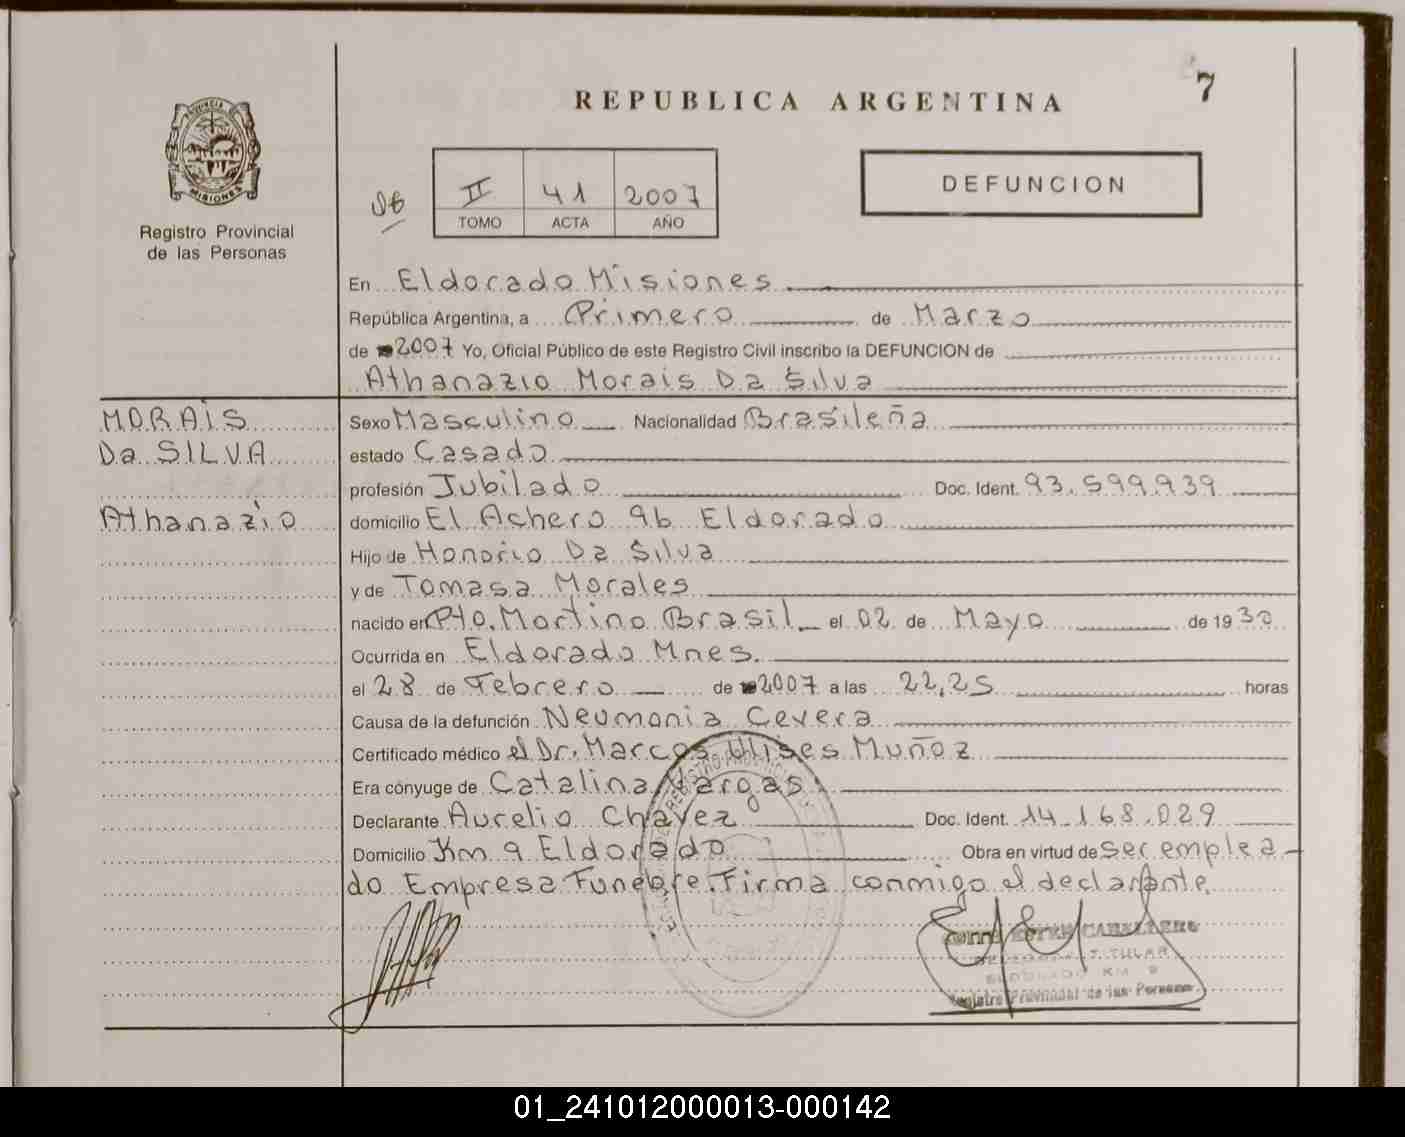 7
REPUBLICA ARGENTINA
PROVINCIA DE
MISIONES
Registro Provincial
de las Personas
II 41 2007
TOMO ACTA AÑO
DEFUNCION
En Eldorado Misiones
República Argentina, a Primero de Marzo
de 2007 Yo, Oficial Público de este Registro Civil inscribo la DEFUNCION de
Athanazio Morais Da Silva
MORAIS
Da SILVA
Athanazio
Sexo Masculino Nacionalidad Brasileña
estado Casado
profesión Jubilado Doc. Ident. 93.599.939
domicilio El Achero 9b Eldorado
Hijo de Honorio Da Silva
y de Tomasa Morales
nacido en Pto. Mortino Brasil el 02 de Mayo de 1930
Ocurrida en Eldorado Mnes.
el 28 de Febrero de 2007 a las 22,25 horas
Causa de la defunción Neumonia Cevera
Certificado médico el Dr. Marcos Ulises Muñoz
Era cónyuge de Catalina Vargas
Declarante Aurelio Chavez Doc. Ident. 14.168.029
Domicilio Km 9 Eldorado Obra en virtud de ser emplea-
do Empresa Funebre. Firma conmigo el declarante.
ESTER CABALLERO
TITULAR
ELDORADO KM 9
Registro Provincial de las Personas
01_241012000013-000142